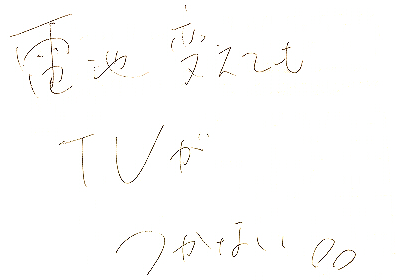 電池変えても
TVが
つかない。。